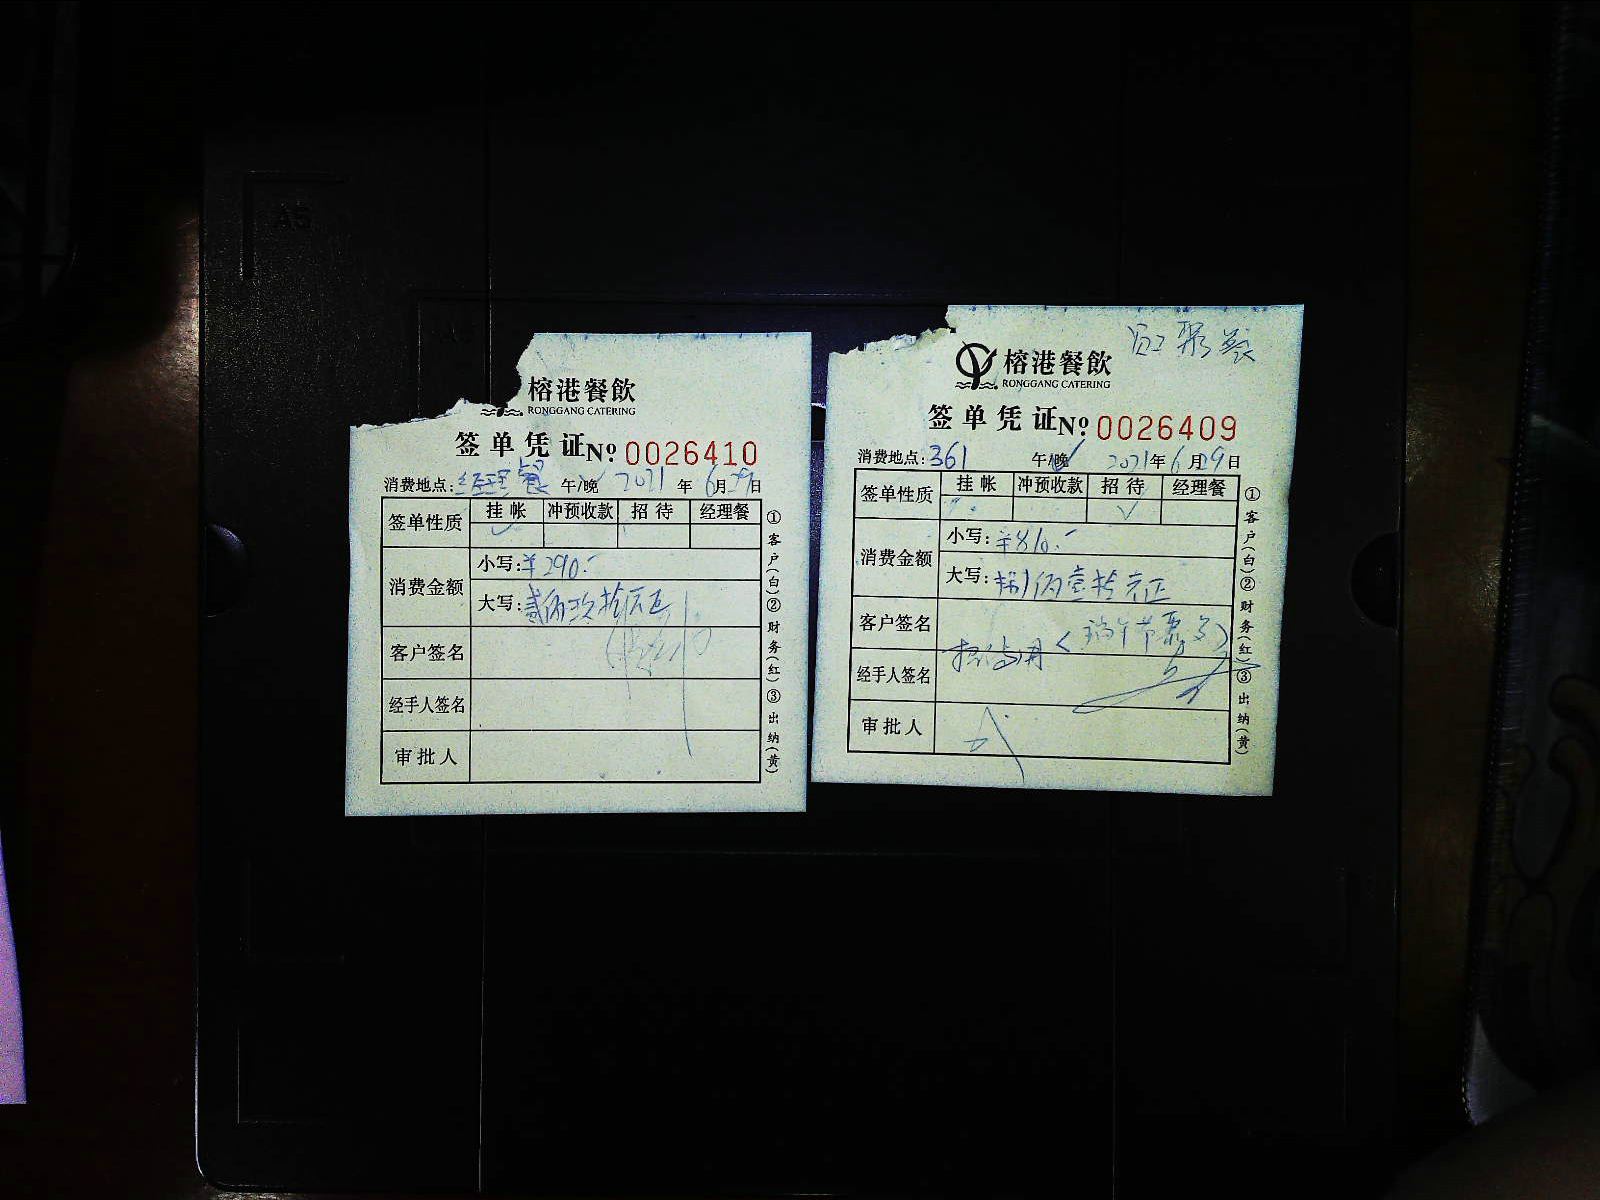 榕港餐飲
RONGGANG CATERING
签单凭证 № 0026410
消费地点: 经理餐 午/晚 2021年6月29日
签单性质 挂帐 冲预收款 招待 经理餐
✓
消费金额 小写: ¥290.-
大写: 贰佰玖拾元正
客户签名
经手人签名
审批人
①客户(白)②财务(红)③出纳(黄)
员工聚餐
榕港餐飲
RONGGANG CATERING
签单凭证 № 0026409
消费地点: 361 午/晚 ✓ 2021年6月29日
签单性质 挂帐 冲预收款 招待 经理餐
✓
消费金额 小写: ¥810.-
大写: 捌佰壹拾元正
客户签名
经手人签名
审批人
①客户(白)②财务(红)③出纳(黄)